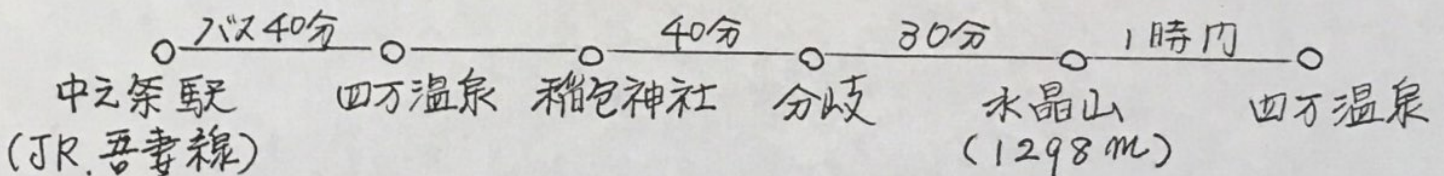 バス40分 40分 30分 1時間
中之条駅 四万温泉 稲包神社 分岐 水晶山 四万温泉
(JR.吾妻線) (1298m)